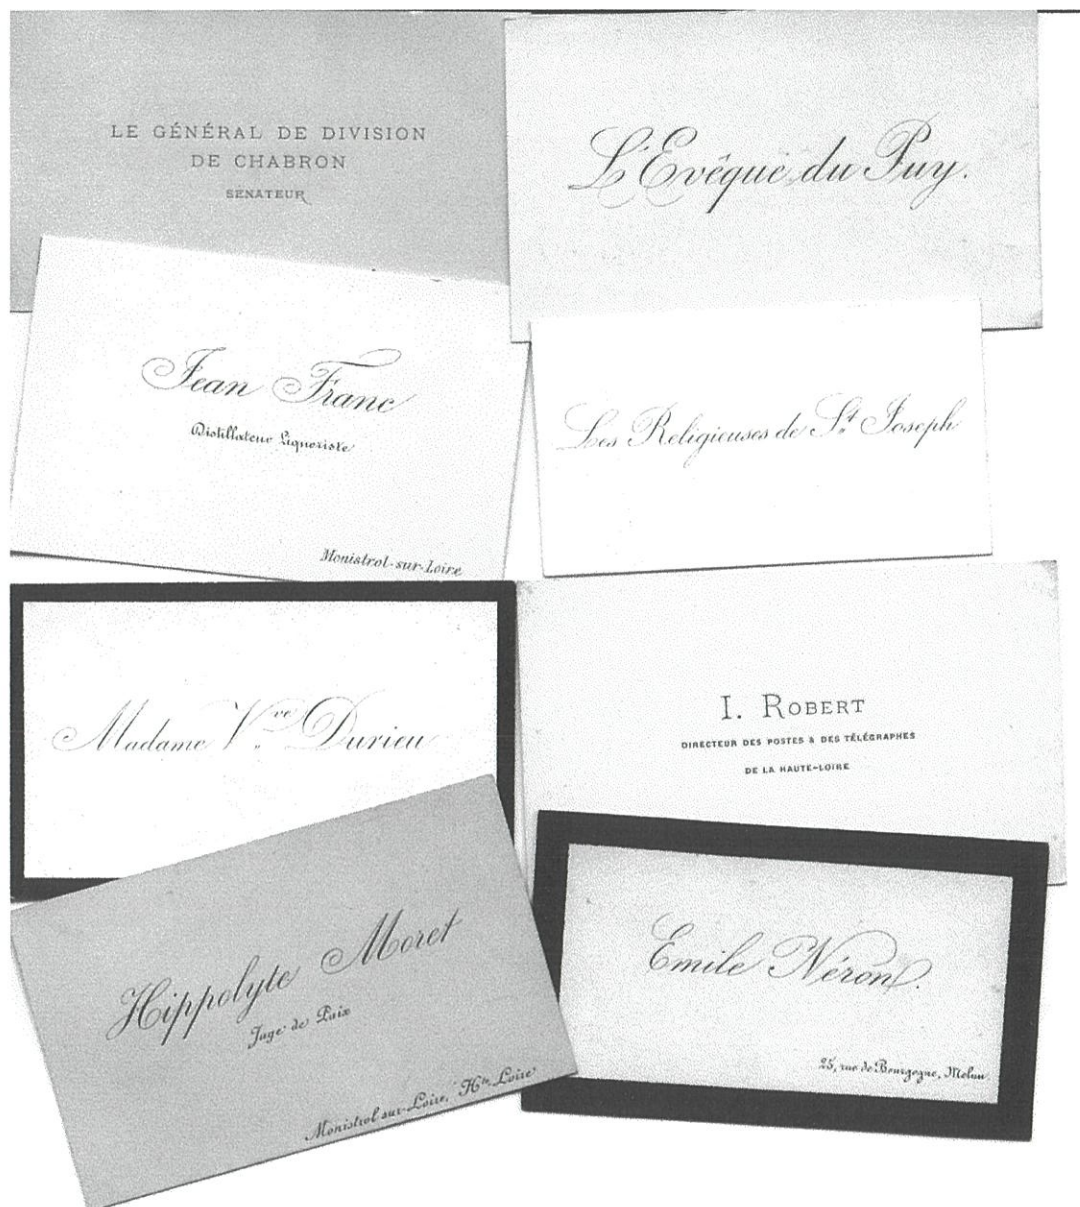 LE GÉNÉRAL DE DIVISION
DE CHABRON
SÉNATEUR
L'Evêque du Puy.
Jean Franc
Distillateur Liquoriste
Monistrol-sur-Loire
Les Religieuses de St Joseph
Madame Vve Durieu
I. ROBERT
DIRECTEUR DES POSTES & DES TÉLÉGRAPHES
DE LA HAUTE-LOIRE
Hippolyte Moret
Juge de Paix
Monistrol-sur-Loire, Hte Loire
Emile Néron.
25, rue de Bourgogne, Melun